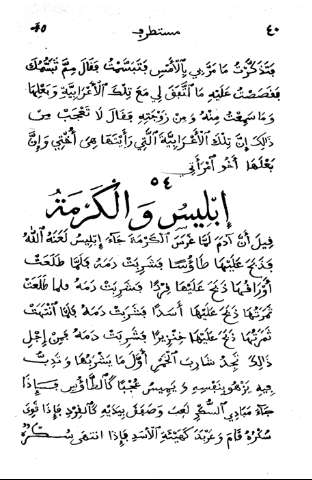 ٤٠ مستظرف 40
فتذكرت ما مر بي بالأمس فتبسمت فقال مم تبسمك
فقصصت عليه ما اتفق لي مع تلك الأعرابية وبعلها
وما سمعت منه ومن زوجته فقال لا تعجب من
ذلك إن تلك الأعرابية التي رأيتها هي أختي وإن
بعلها أخو امرأتي
٥٤
إبليس والكرمة
قيل أن آدم لما غرس الكرمة جاء إبليس لعنه الله
فذبح عليها طاؤسا فشربت دمه فلما طلعت
أوراقها ذبح عليها قردا فشربت دمه فلما طلعت
ثمرتها ذبح عليها أسدا فشربت دمه فلما انتهت
ثمرتها ذبح عليها خنزيرا فشربت دمه فمن اجل
ذلك تجد شارب الخمر أول ما يشربها وتدب
فيه يزهو بنفسه ويميس عجبا كالطاؤس فإذا
جاء مبادي السكر لعب وصفق بيديه كالقرد فإذا قوي
سكره قام وعربد كهيئة الأسد فإذا انتهى سكره